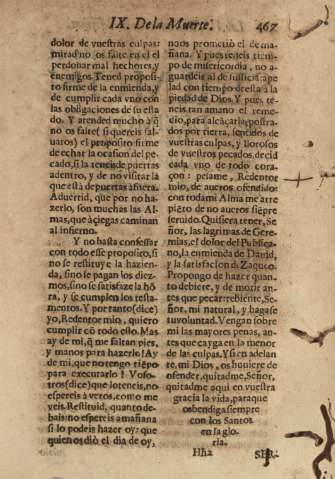 IX. De la Muerte. 467
dolor de vuestras culpas:
mirad no os falte en el el
perdonar mal hechores, y
enemigos Tened proposi-
to firme de la enmienda, y
de cumplir cada vno con
las obligaciones de su esta
do. Y atended mucho à q̃
no os falte (si quereis sal-
uaros) el proposito firme
de echar la ocasion del pe-
cado, si la teneis de puertas
adentro, y de no visitar la
que està de puertas afuera.
Aduertid, que por no ha-
zerlo, son muchas las Al-
mas, que à ciegas caminan
al infierno.
Y no basta confessar
con todo esse proposito, si
no se restituye la hazien-
da, sino se pagan los diez-
mos, sino se satisfaze la hō
ra, y se cumplen los testa-
mentos. Y por tanto (dice)
yo, Redentor mio, quiero
cumplir cō todo esso. Mas
ay de mi, q̃ me faltan pies,
y manos para hazerlo! Ay
de mi, que no tengo tiēpo
para executarlo! Voso-
tros (dice) que lo teneis, no
espereis à veros, como me
veis. Restituid, quanto de-
bais: no espereis a mañana
si lo podeis hazer oy: que
quien os diò el dia de oy,
no os prometiò el de ma-
ñana. Y pues teneis tiem-
po de misericordia, no a-
guardeis al de justicia: ape
lad con tiempo de esta a la
piedad de Dios. Y pues, te-
neis tan amano el reme-
cio, para alcāçarlo, postra-
dos por tierra, sentidos de
vuestras culpas, y llorosos
de vuestros pecados, decid
cada vno de todo cora-
çon: pesame, Redentor
mio, de aueros ofendido:
con toda mi Alma me arre
piēto de no aueros siēpre
seruido. Quisiera tener, Se
ñor, las lagrimas de Gere-
mias, el dolor del Publica-
no, la enmienda de Dauid,
y la satisfacion de Zaqueo.
Propongo de hazer quan-
to debiere, y de morir an-
tes que pecar: rebiente, Se-
ñor, mi natural, y hagase
tu voluntad. Vengan sobre
mi las mayores penas, an-
tes que cayga en la menor
de las culpas. Y si en adelan
te, mi Dios, os huuiere de
ofender, quitadme, Señor,
quitadme aqui en vuestra
gracia la vida, para que
os bendiga siempre
con los Santos
en la glo-
ria.
Hh2